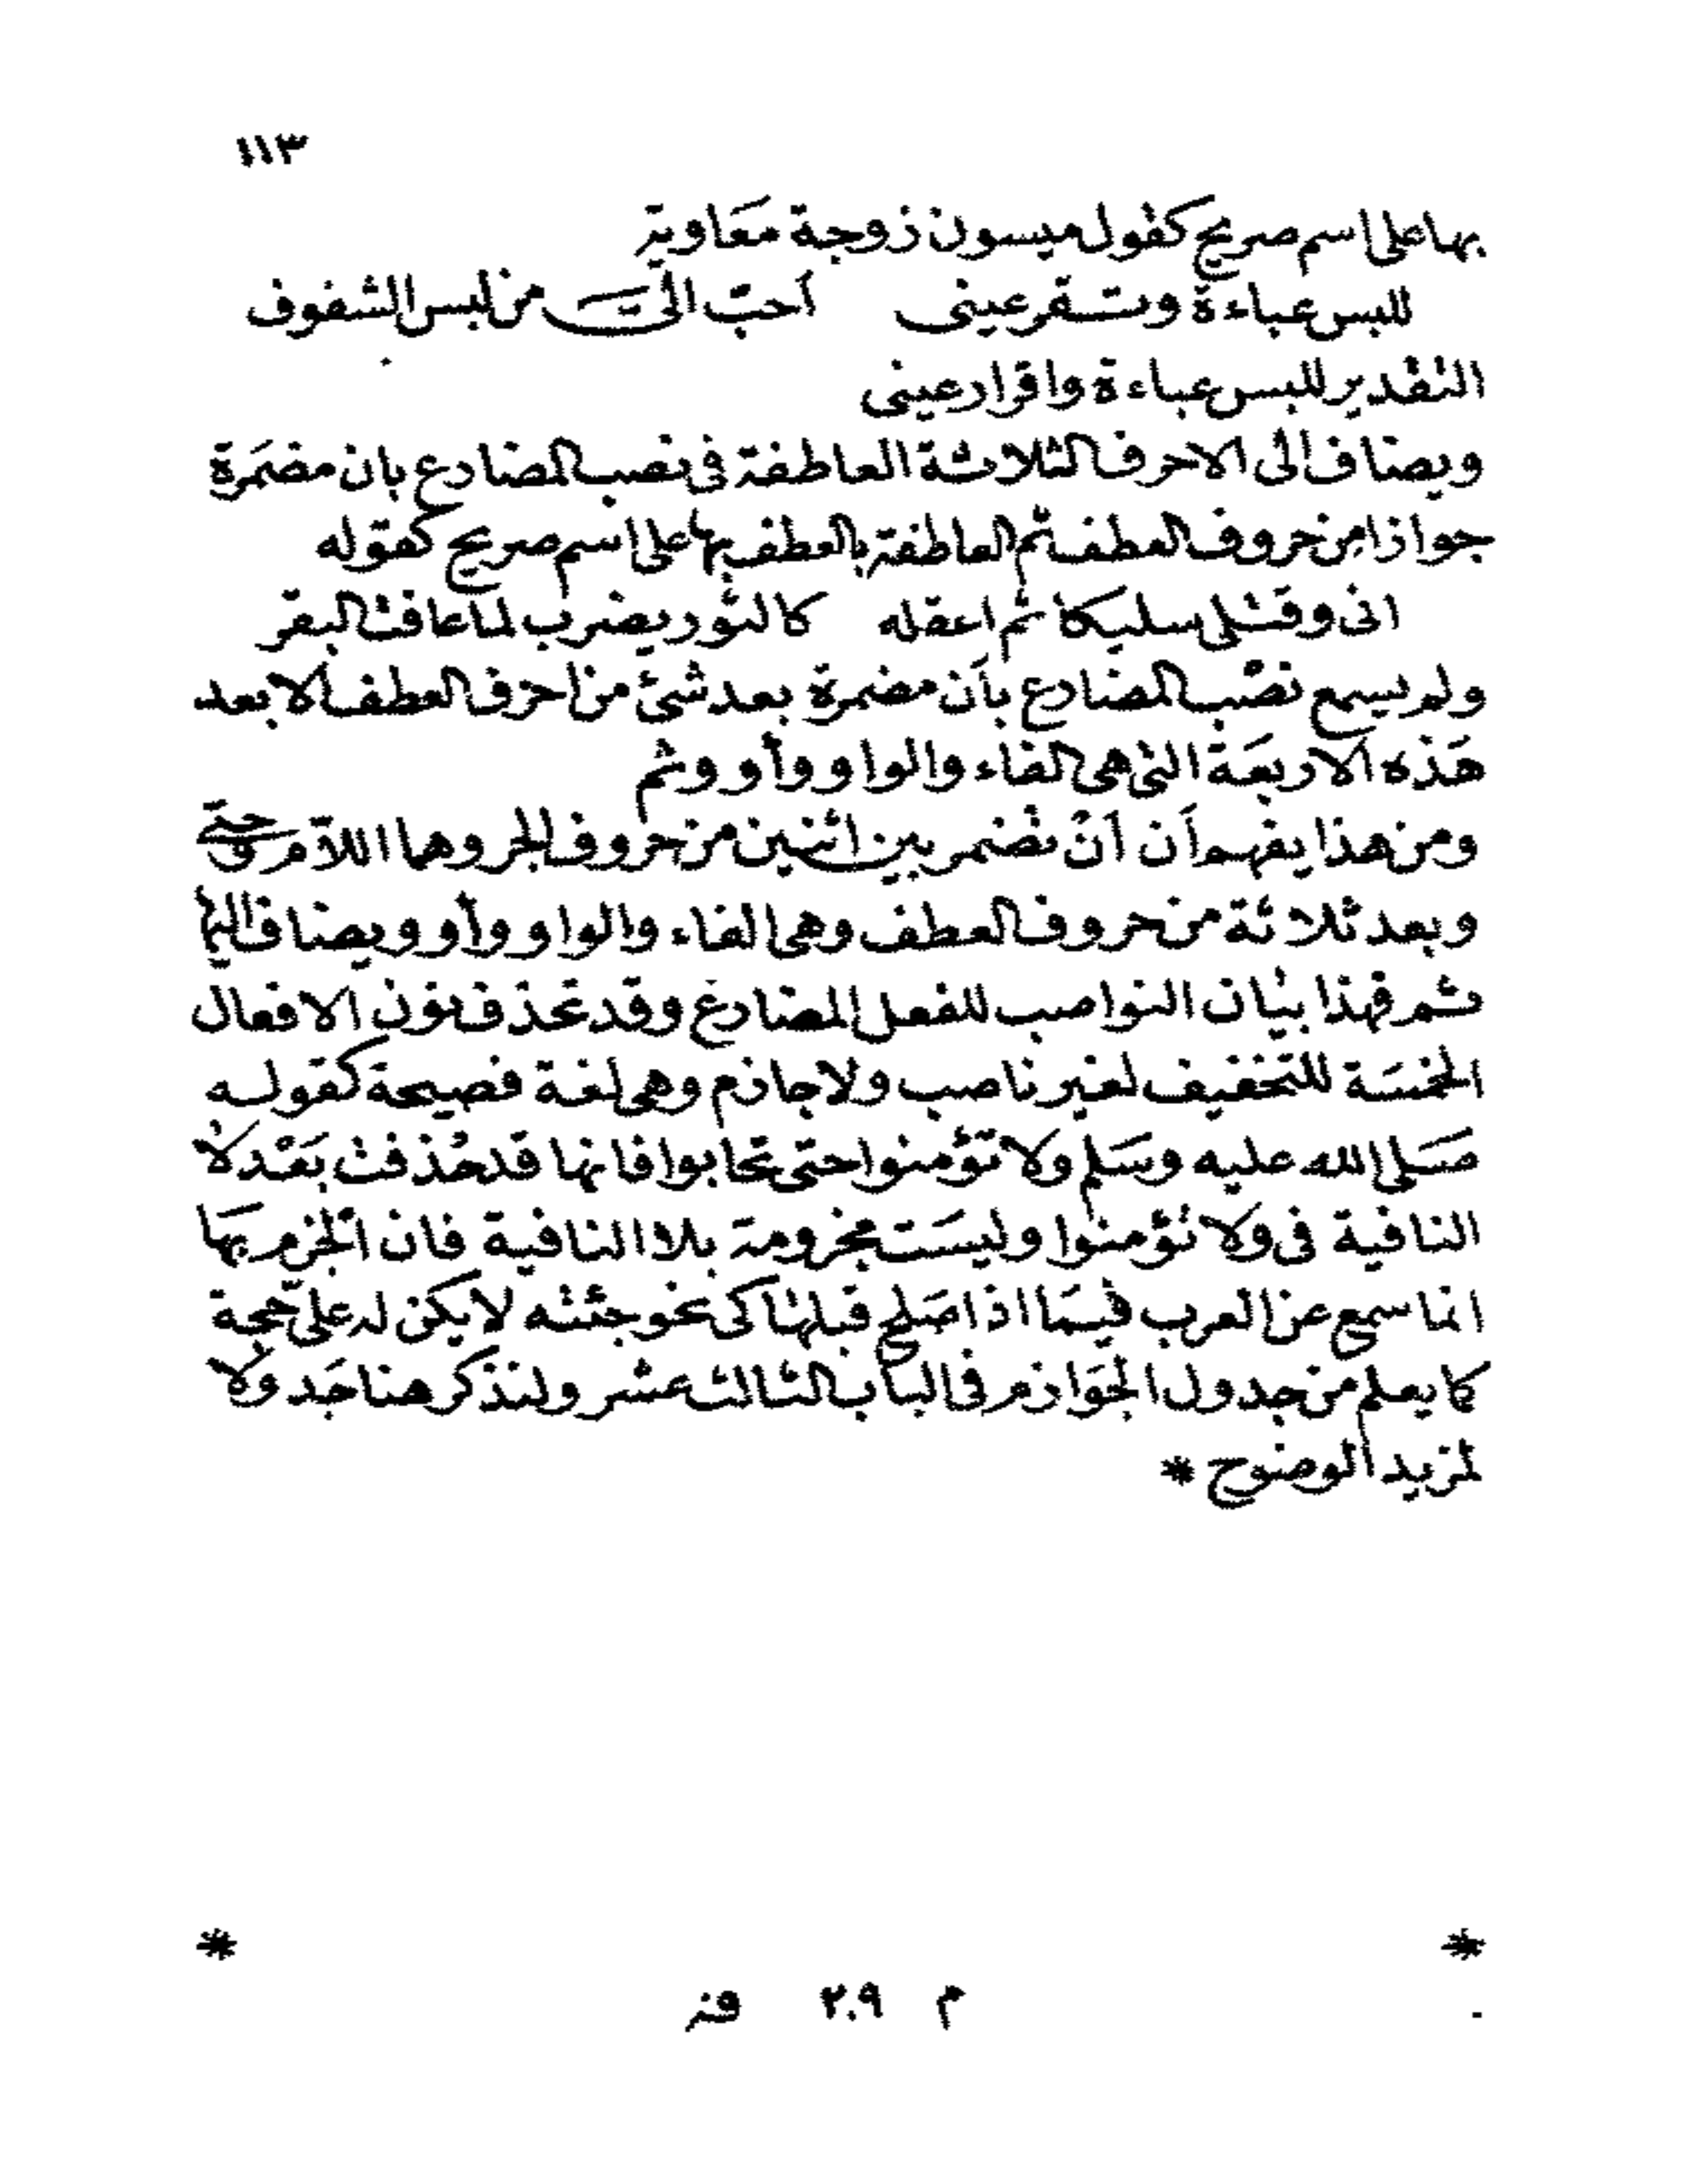 ١١٣
بها على اسم صريح كقول ميسون زوجة معَاوية
للبس عباءة وتقر عينى أحبّ الىّ من لبس الشفوف
التقدير للبس عباءة واقرار عينى
ويضاف الى الاحرف الثلاثة العاطفة فى نصب المضارع بان مضمَرة
جوازا من حروف العطف ثم العاطفة بالعطف بها على اسم صريح كقوله
انى وقتلى سليكا ثم اعقله كالثور يضرب لما عافت البقر
ولم يسمع نصب المضارع بأن مضمرة بعد شئ من احرف العطف الا بعد
هَذه الاربعَة التى هى الفاء والواو وأو وثم
ومن هذا يفهم أن أنْ تضمر بين اثنين من حروف الجر وهما اللاّم وحتى
وبعد ثلاثة من حروف العطف وهى الفاء والواو وأو ويضاف اليها
ثم فهذا بيان النواصب للفعل المضارع وقد تحذف نون الافعال
الخمسَة للتخفيف لغير ناصب ولا جازم وهى لغة فصيحة كقوله
صَلى الله عليه وسَلم ولا تؤمنوا حتى تحابوا فانها قد حُذفت بَعْد لا
النافية فى ولا تؤمنوا وليسَت مجزومة بلا النافية فان الجزم بهَا
انما سمع عن العرب فيمَا اذا صَلح قبلها كى نحو جئته لا يكن له علىّ حجة
كما يعلم من جدول الجوَازم فى الباب الثالث عشر ولنذكر هنا جَدولا
لمزيد الوضوح *
* *
م ٢٠٩ فنـ